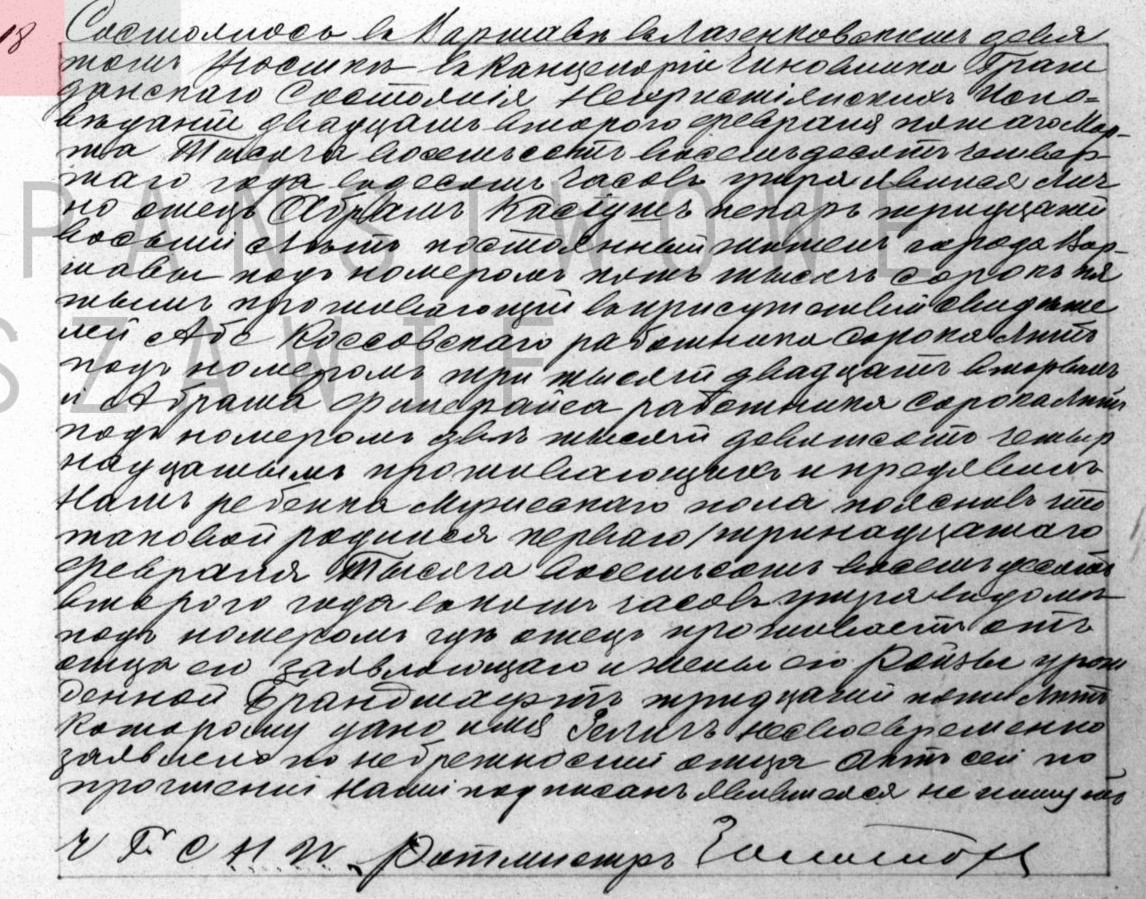 18
Состоялось въ Варшавѣ въ Лазенковскомъ девя
томъ участкѣ въ канцеляріи Чиновника Граж
данскаго Состоянія Нехристіянскихъ Испо=
вѣданій двадцать второго февраля пятаго Мар-
та Тысяча восемьсотъ восемьдесятъ четвер-
таго года въ десять часовъ утра явился лич
но отецъ Абрамъ пекарь тридцати
восьми лѣтъ постоянный житель города Вар-
шавы подъ номеромъ пять тысячъ сорокъ пя
тымъ проживающій въ присутствіи свидѣте
лей Абе Коссовскаго работника сорока лѣтъ
подъ номеромъ три тысячи двадцать вторымъ
и Абрама работника сорока лѣтъ
подъ номеромъ двѣ тысячи девятьсотъ четыр
надцатымъ проживающихъ и предявилъ
Намъ ребенка мужескаго пола поясновъ что
таковой родился перваго/тринадцатаго
февраля Тысяча восемьсотъ восемьдесятъ
второго года въ пять часовъ утра въ домѣ
подъ номеромъ гдѣ отецъ проживаетъ отъ
отца его заявляющаго и жены его Ройзы урож
денной тридцати пяти лѣтъ
которому дано имя несвоевременно
заявлено по небрежности отца Актъ сей по
прочтеніи Нами подписанъ явившіеся не пишутъ
Ч Г С Н И Ротмистръ
PAŃSTWOWE
SZAWIE